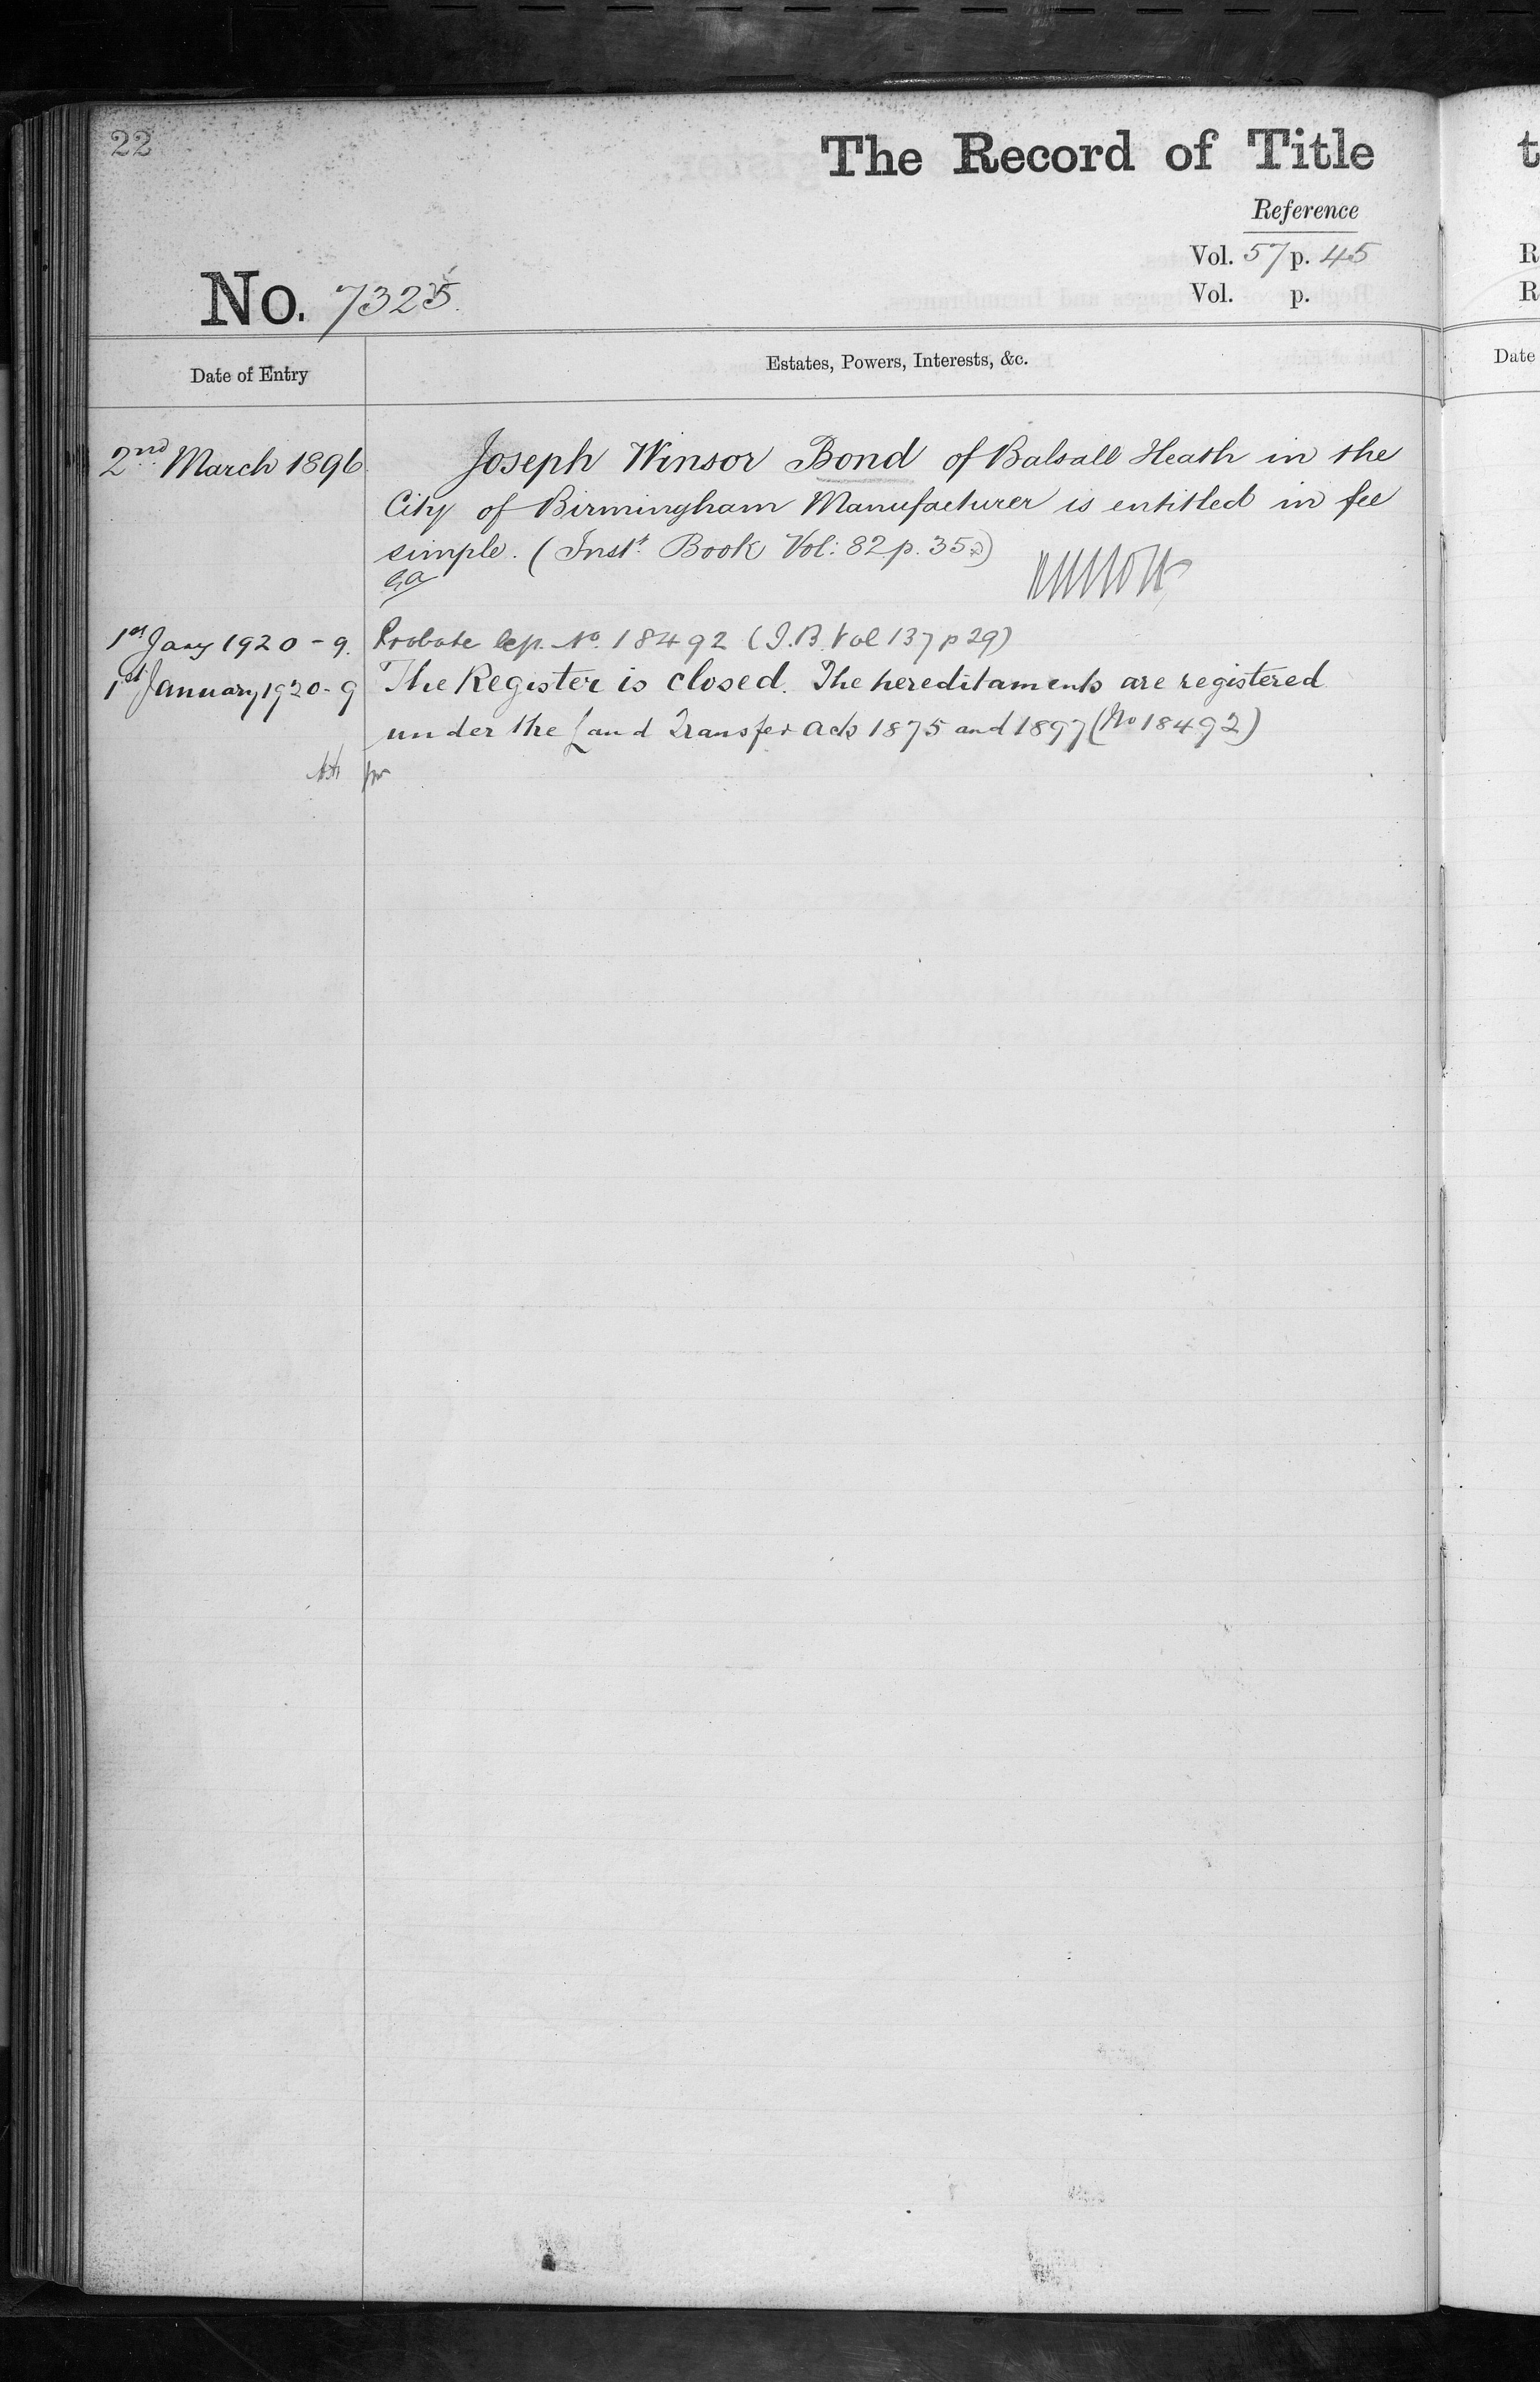 22
The Record of Title
Reference
Vol. 57 p. 45
Vol. p.
No. 7325.
Date of Entry
Estates, Powers, Interests, &c.
2nd March 1896
Joseph Winsor Bond of Balsall Heath in the
City of Birmingham Manufacturer is entitled in fee
simple. (Inst. Book Vol: 82 p. 35)
1st Jany 1920 - 9. Probate No. 18492 (I.B. Vol 137 p 29)
1st January 1920 - 9 The Register is closed. The hereditaments are registered
under the Land Transfer Acts 1875 and 1897 (No 18492)
t
R
R
Date